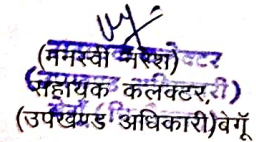 (मनस्वी नरेश)
सहायक कलेक्टर,
(उपखण्ड अधिकारी)वेगूँ